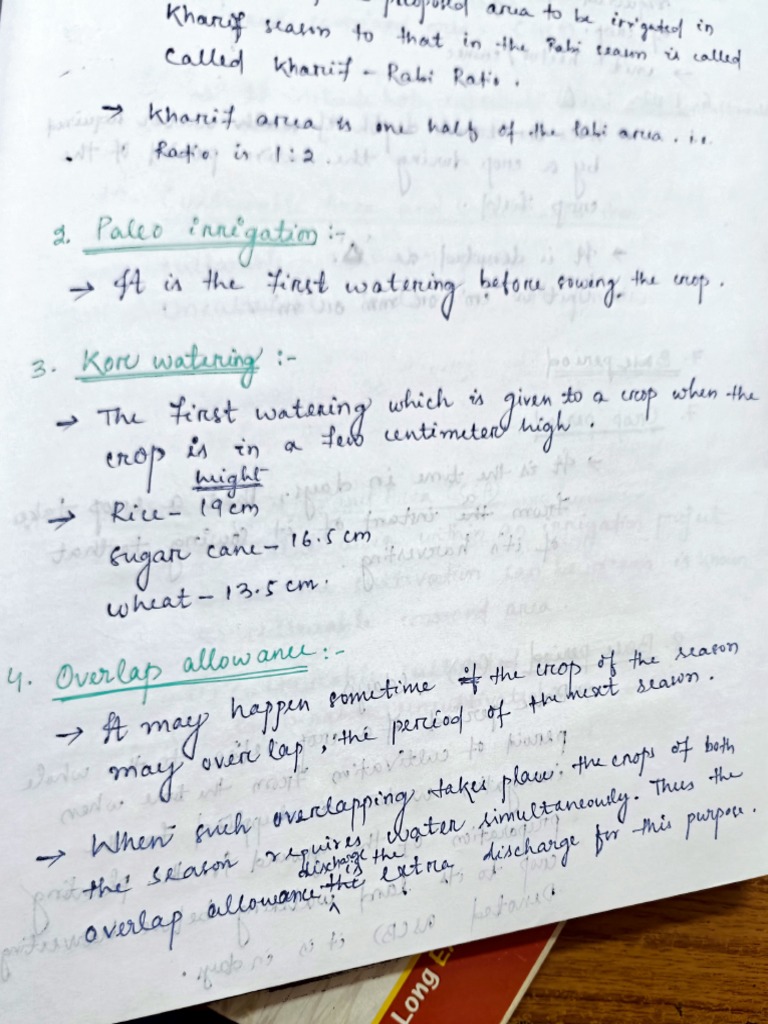 proposed area to be irrigated in
Kharif season to that in the Rabi season is called
called Kharif - Rabi Ratio.
→ Kharif area is one half of the Rabi area. i.e.
Ratio is 1:2.
2. Paleo irrigation :-
→ It is the first watering before sowing the crop.
3. Kore watering :-
→ The first watering which is given to a crop when the
crop is in a few centimeter high.
height
→ Rice - 19 cm
sugar cane - 16.5 cm
wheat - 13.5 cm.
4. Overlap allowance :-
→ It may happen sometime if the crop of the season
may over lap, the period of the next season.
→ When such overlapping takes place, the crops of both
the season requires water simultaneously. Thus the
discharge is the
overlap allowance the extra discharge for this purpose.
Long